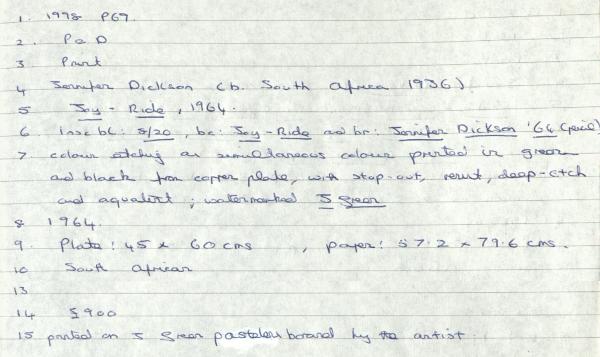 1. 1978 P69.
2. P&D
3 Print
4 Jennifer Dickson (b. South Africa 1936).
5 Joy-Ride, 1964.
6 Insc bl: 5/20, bc: Joy-Ride and br: Jennifer Dickson '64 (pencil)
7. colour etching as simultaneous colour printed in green
and black from copper plate, with stop-out, resist, deep-etch
and aquatint; watermarked J Green
8 1964.
9. Plate: 45 x 60 cms , paper: 57.2 x 79.6 cms.
10 South African
13
14 £900
15 printed on J Green board by the artist.